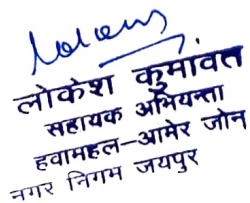 लोकेश कुमावत
सहायक अभियन्ता
हवामहल–आमेर जोन
नगर निगम जयपुर